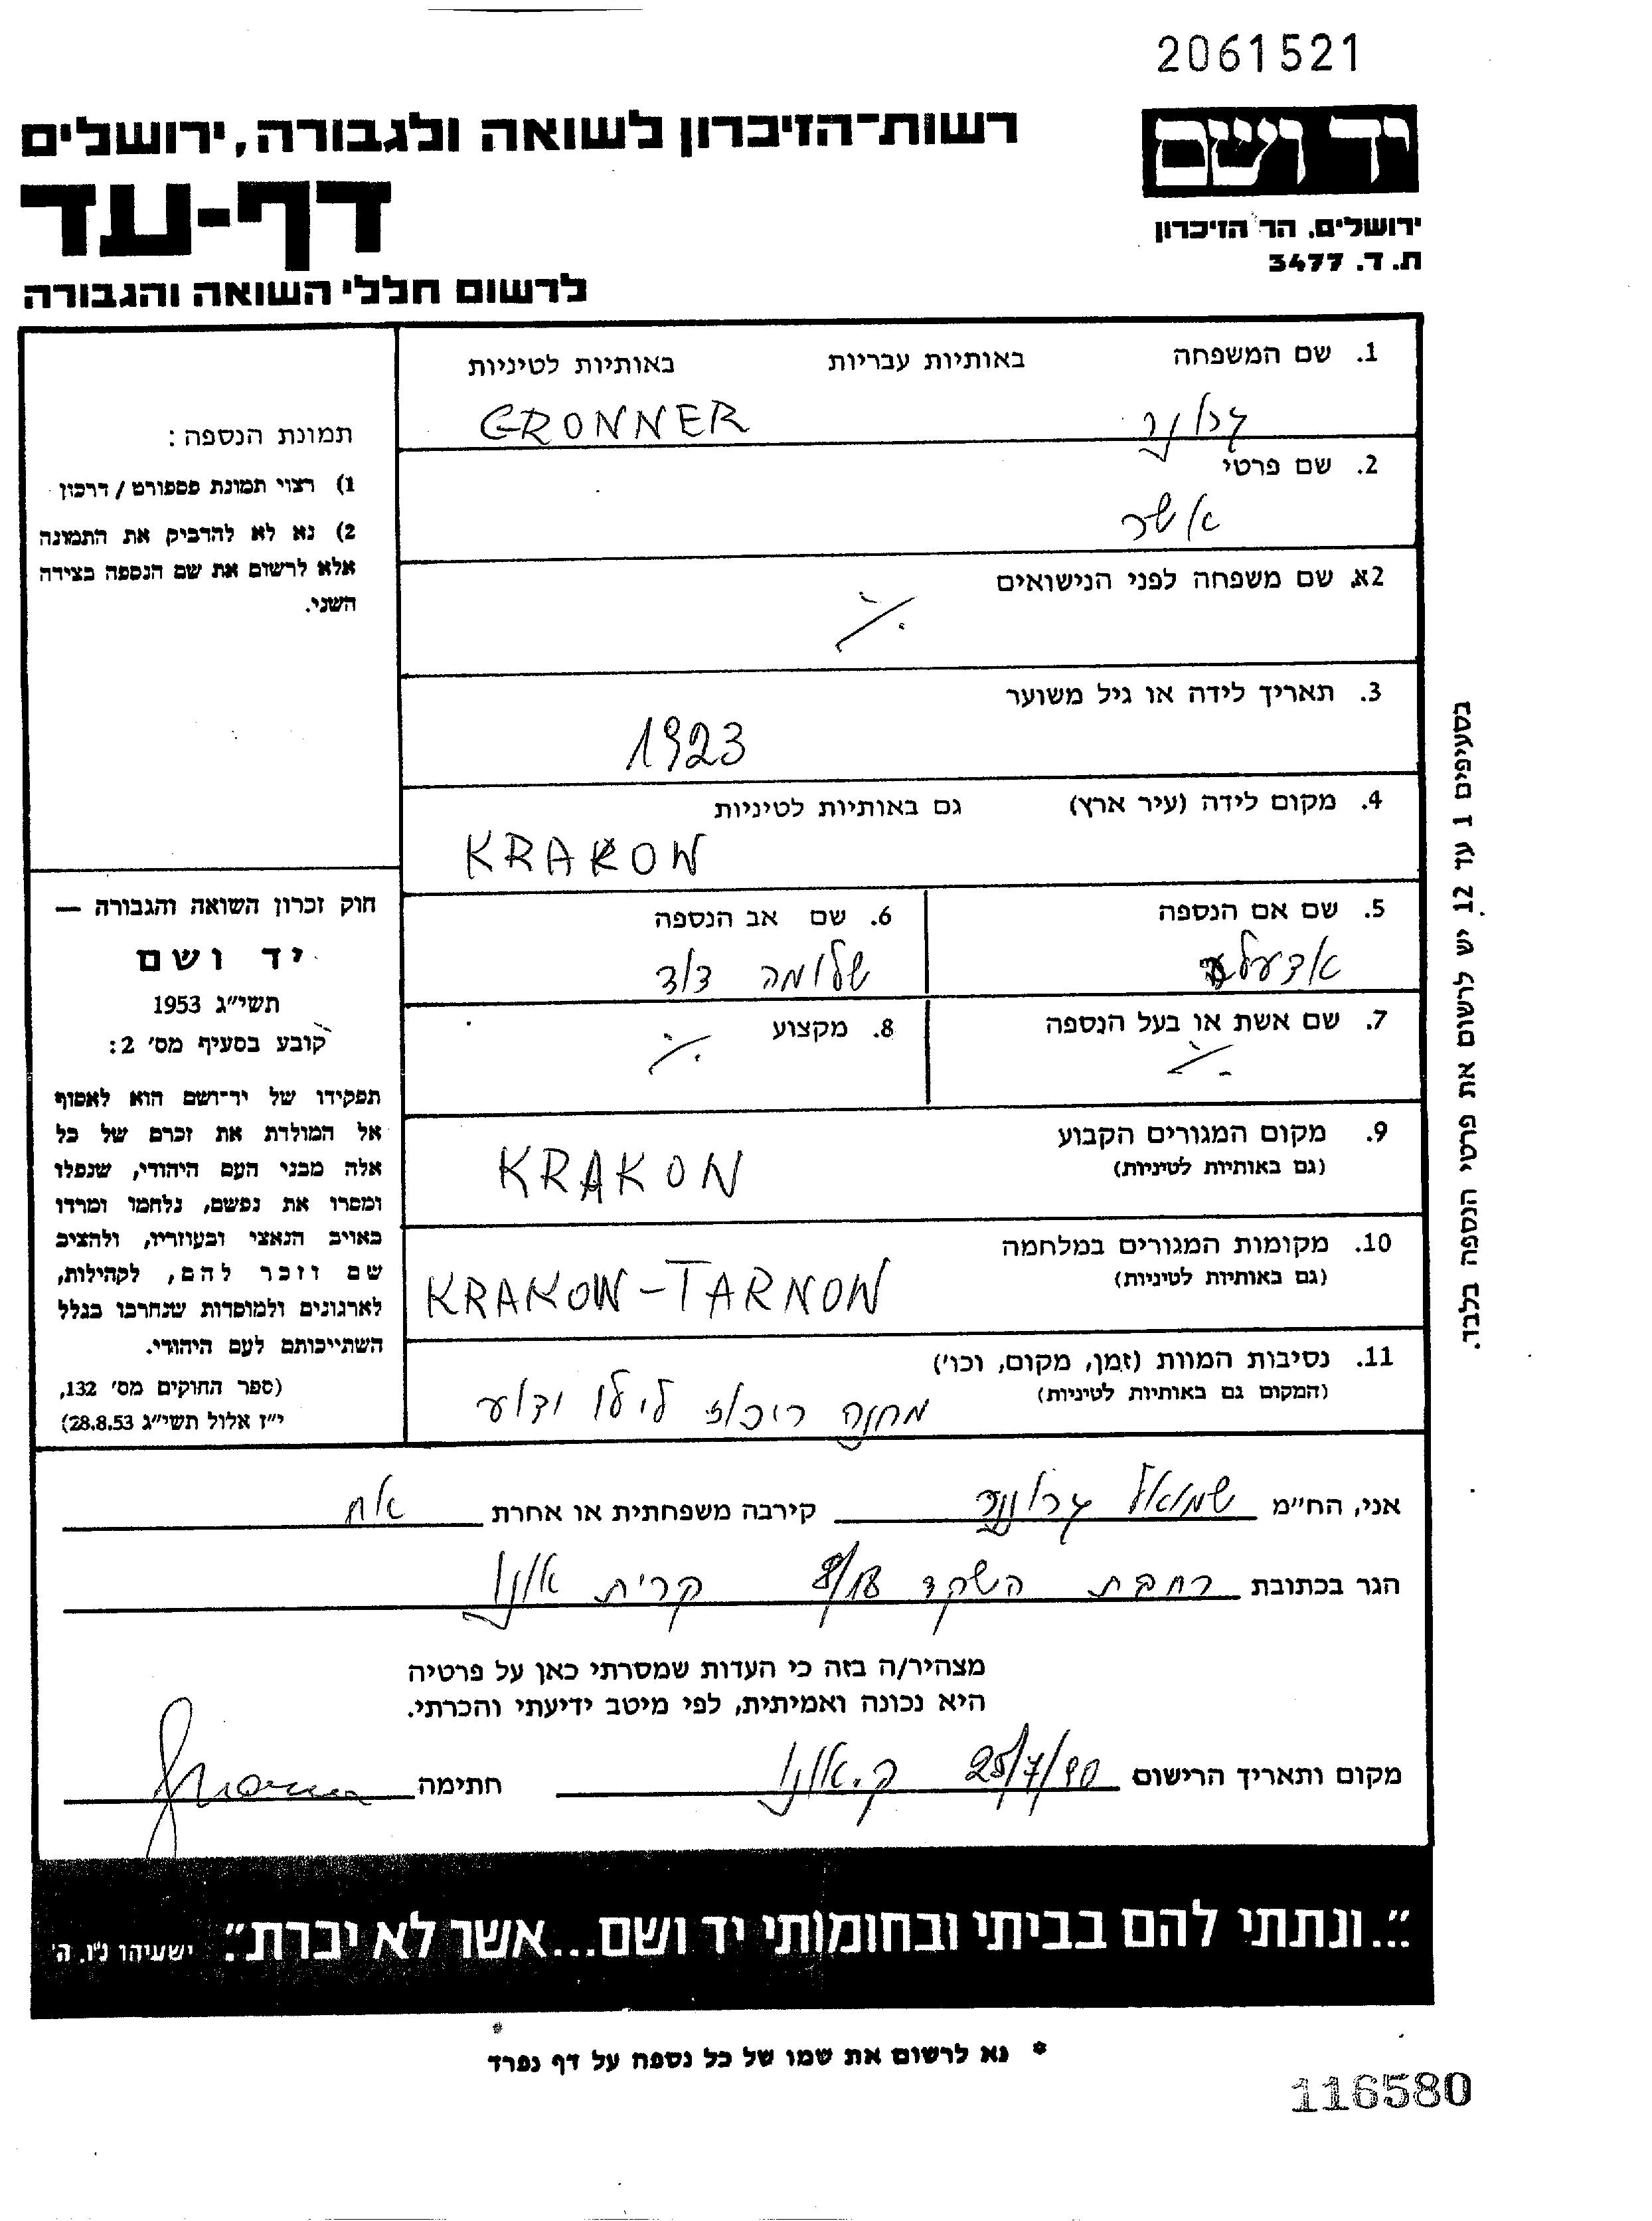 2061521
יד ושם
ירושלים. הר הזיכרון
ת. ד. 3477
רשות-הזיכרון לשואה ולגבורה, ירושלים
דף-עד
לרשום חללי השואה והגבורה
1. שם המשפחה באותיות עבריות באותיות לטיניות
גרונר GRONNER
2. שם פרטי
אשר
2א. שם משפחה לפני הנישואים
./.
3. תאריך לידה או גיל משוער
1923
4. מקום לידה (עיר ארץ) גם באותיות לטיניות
KRAKOW
5. שם אם הנספה 6. שם אב הנספה
שלומה דוד
7. שם אשת או בעל הנספה 8. מקצוע
./. ./.
9. מקום המגורים הקבוע
(גם באותיות לטיניות)
KRAKOW
10. מקומות המגורים במלחמה
(גם באותיות לטיניות)
KRAKOW-TARNOW
11. נסיבות המוות (זמן, מקום, וכו')
(המקום גם באותיות לטיניות)
מחנה ריכוז לילו ודוע
תמונת הנספה:
1) רצוי תמונת פספורט / דרכון
2) נא לא להדביק את התמונה
אלא לרשום את שם הנספה בצידה
השני.
חוק זכרון השואה והגבורה —
יד ושם
תשי"ג 1953
קובע בסעיף מס' 2:
תפקידו של יד-ושם הוא לאסוף
אל המולדת את זכרם של כל
אלה מבני העם היהודי, שנפלו
ומסרו את נפשם, נלחמו ומרדו
באויב הנאצי ובעוזריו, ולהציב
שם וזכר להם, לקהילות,
לארגונים ולמוסדות שנחרבו בגלל
השתייכותם לעם היהודי.
(ספר החוקים מס' 132,
י"ז אלול תשי"ג 28.8.53)
בסעיפים 1 עד 12 יש לרשום את פרטי הנספה בלבד.
אני, הח"מ שמואל גרונר קירבה משפחתית או אחרת אח
הגר בכתובת רחבת השקד 8/18 קרית אונו
מצהיר/ה בזה כי העדות שמסרתי כאן על פרטיה
היא נכונה ואמיתית, לפי מיטב ידיעתי והכרתי.
מקום ותאריך הרישום 25/7/90 ק. אונו חתימה
"...ונתתי להם בביתי ובחומותי יד ושם...אשר לא יכרת". ישעיהו נ"ו, ה'
* נא לרשום את שמו של כל נספה על דף נפרד
116580